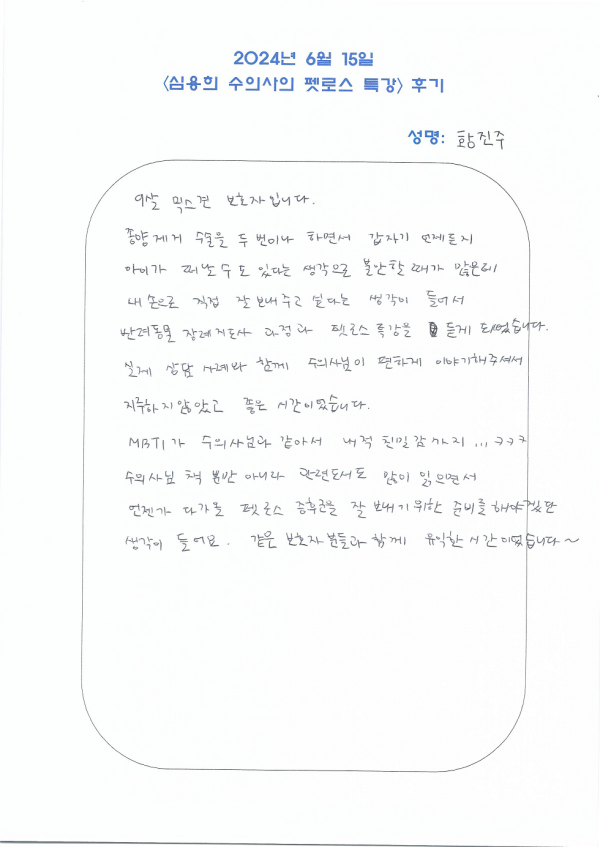 2024년 6월 15일
<심용희 수의사의 펫로스 특강> 후기
성명: 황진주
9살 믹스견 보호자입니다.
종양제거 수술을 두번이나 하면서 갑자기 언제든지
아이가 떠날수도 있다는 생각으로 불안할때가 많은데
내손으로 직접 잘보내주고 싶다는 생각이 들어서
반려동물 장례지도사 과정과 펫로스 특강을 듣게 되었습니다.
실제 상담 사례와 함께 수의사님이 편하게 이야기해주셔서
지루하지않았고 좋은 시간이었습니다.
MBTI가 수의사님과 같아서 내적 친밀감까지 ... ㅋㅋㅋ
수의사님 책 뿐만 아니라 관련도서도 많이 읽으면서
언젠가 다가올 펫로스 증후군을 잘 보내기위한 준비를해야겠단
생각이 들어요. 같은 보호자분들과 함께 유익한 시간이었습니다~